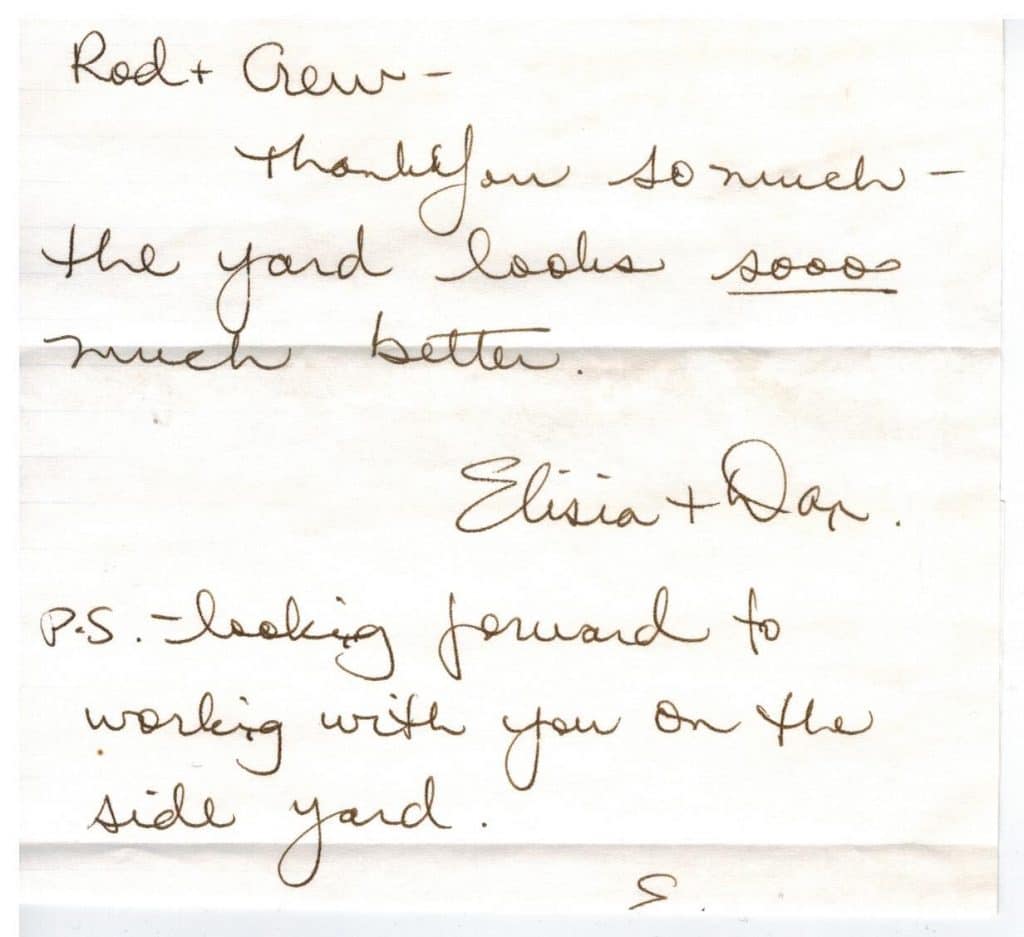 Rod + Crew -
Thank you so much -
the yard looks sooo
much better.
Elisia + Dan.
P.S. - looking forward to
working with you on the
side yard.
E.